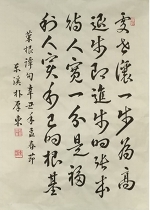 處世讓一步為高
退步即進步的張本
待人寬一分是福
利人實利己的根基
菜根譚句辛丑年孟春節
東溪朴厚東